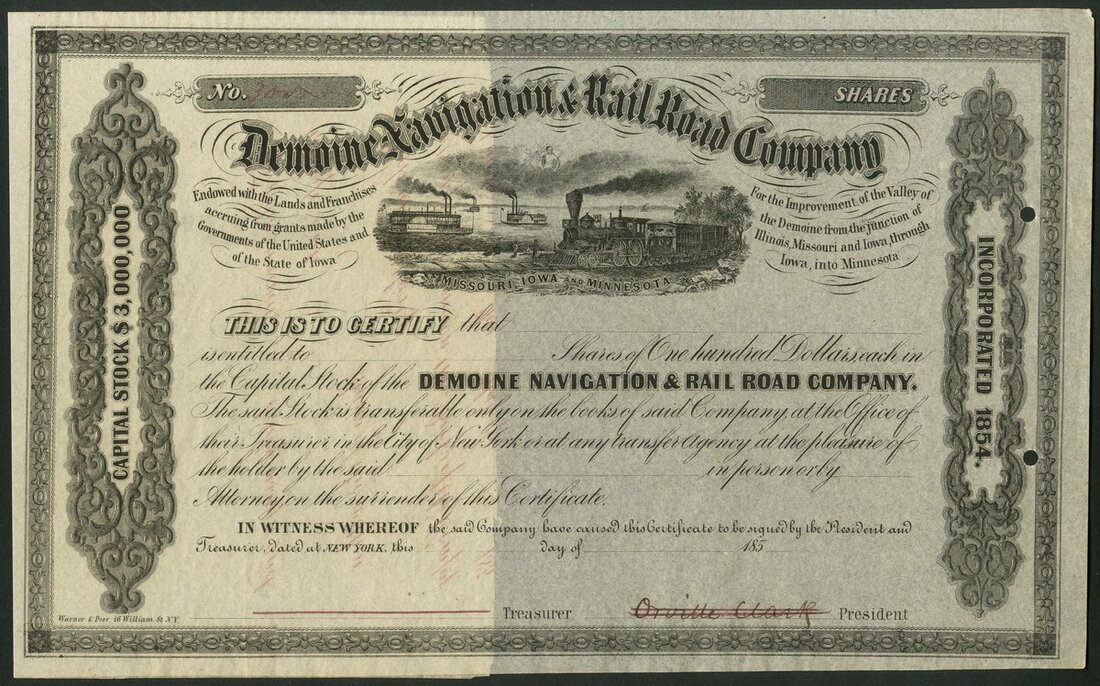 No.
SHARES
Demoine Navigation & Rail Road Company
Endowed with the Lands and Franchises
accruing from grants made by the
Governments of the United States and
of the State of Iowa
For the Improvement of the Valley of
the Demoine from the junction of
Illinois, Missouri and Iowa, through
Iowa, into Minnesota
MISSOURI, IOWA AND MINNESOTA
CAPITAL STOCK $3,000,000
INCORPORATED 1854.
THIS IS TO CERTIFY that
is entitled to Shares of One hundred Dollars each in
the Capital Stock of the DEMOINE NAVIGATION & RAIL ROAD COMPANY.
The said Stock is transferable only on the books of said Company, at the Office of
their Treasurer in the City of New York or at any transfer Agency at the pleasure of
the holder by the said in person or by
Attorney on the surrender of this Certificate.
IN WITNESS WHEREOF the said Company have caused this Certificate to be signed by the President and
Treasurer, dated at NEW YORK, this day of 185
Treasurer Orville Clark President
Warner & Peer 46 William St N.Y.